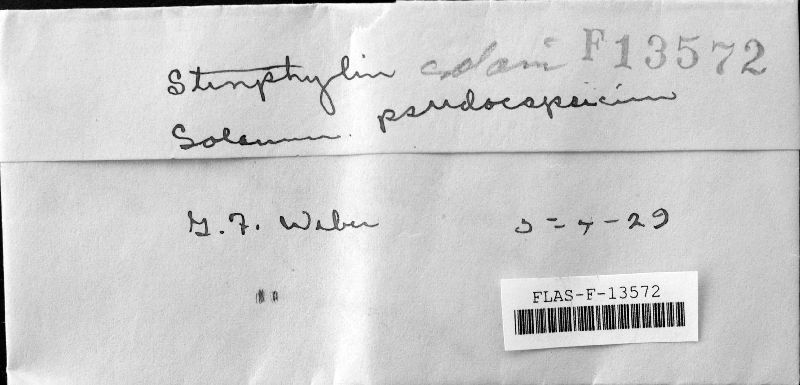 Stemphylium solani F13572
Solanum pseudocapsicum
G. F. Weber 5-4-29
FLAS-F-13572